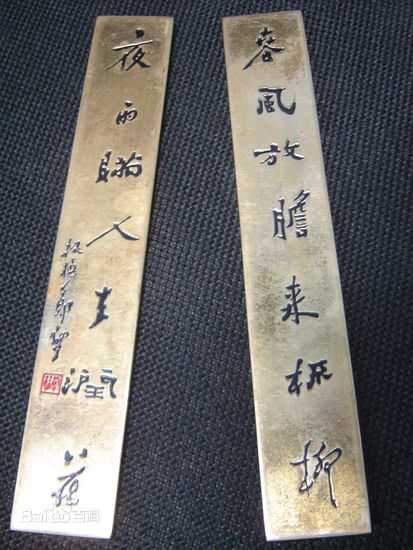 春風放膽来梳柳
夜雨瞞人去潤花
板橋鄭燮
Baidu百科